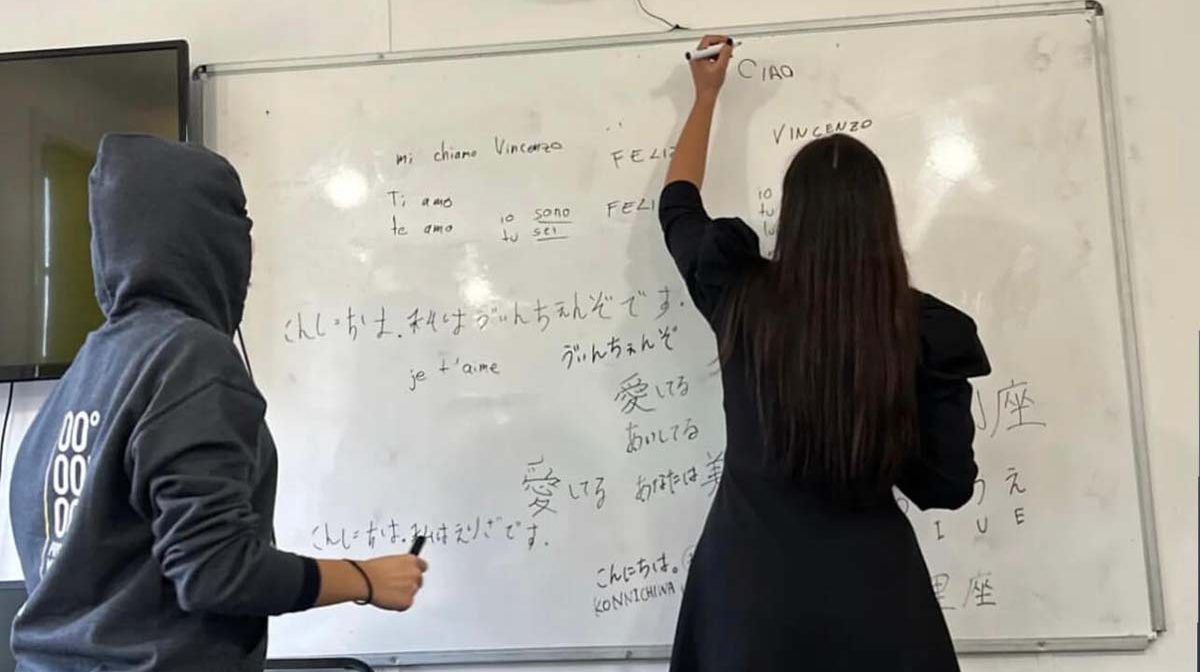 CIAO
mi chiamo Vincenzo
FELI
VINCENZO
Ti amo
te amo
io sono
tu sei
FELI
io
tu
こんにちは.私はゔぃんちぇんぞです.
je t'aime
ゔぃんちぇんぞ
愛してる
座
あいしてる
愛してる あなたは美
え
I U E
こんにちは.私はえりざです.
こんにちは。
KONNICHIWA
座
00°
00
0